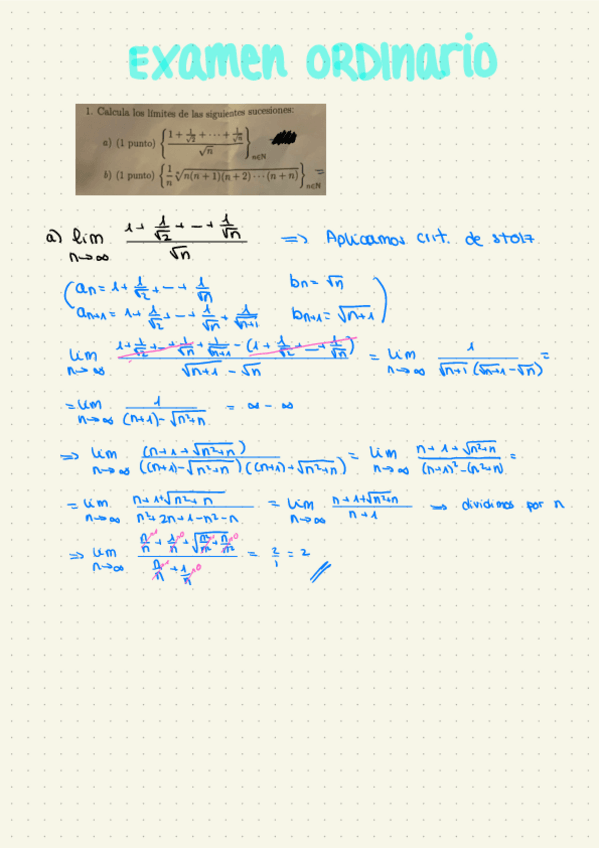 Examen ORDINARIO
1. Calcula los límites de las siguientes sucesiones:
a) (1 punto) {(1 + 1/√2 + ··· + 1/√n)/√n} n∈N
b) (1 punto) {1/n ⁿ√(n(n+1)(n+2)···(n+n))} n∈N =
a) lim n→∞ (1 + 1/√2 + ... + 1/√n)/√n => Aplicamos crit. de stolz
(an = 1 + 1/√2 + ... + 1/√n bn = √n
an+1 = 1 + 1/√2 + ... + 1/√n + 1/√(n+1) bn+1 = √(n+1))
lim n→∞ (1 + 1/√2 + ... + 1/√n + 1/√(n+1) - (1 + 1/√2 + ... + 1/√n))/(√(n+1) - √n) = lim n→∞ 1/(√(n+1) (√(n+1) - √n)) =
= lim n→∞ 1/((n+1) - √(n²+n)) = ∞ - ∞
=> lim n→∞ (n+1+√(n²+n))/(((n+1) - √(n²+n))((n+1) + √(n²+n))) = lim n→∞ (n+1+√(n²+n))/((n+1)² - (n²+n)) =
= lim n→∞ (n+1+√(n²+n))/(n²+2n+1-n²-n) = lim n→∞ (n+1+√(n²+n))/(n+1) => dividimos por n
=> lim n→∞ (n/n + 1/n + √(n²/n² + n/n²))/(n/n + 1/n) = 2/1 = 2